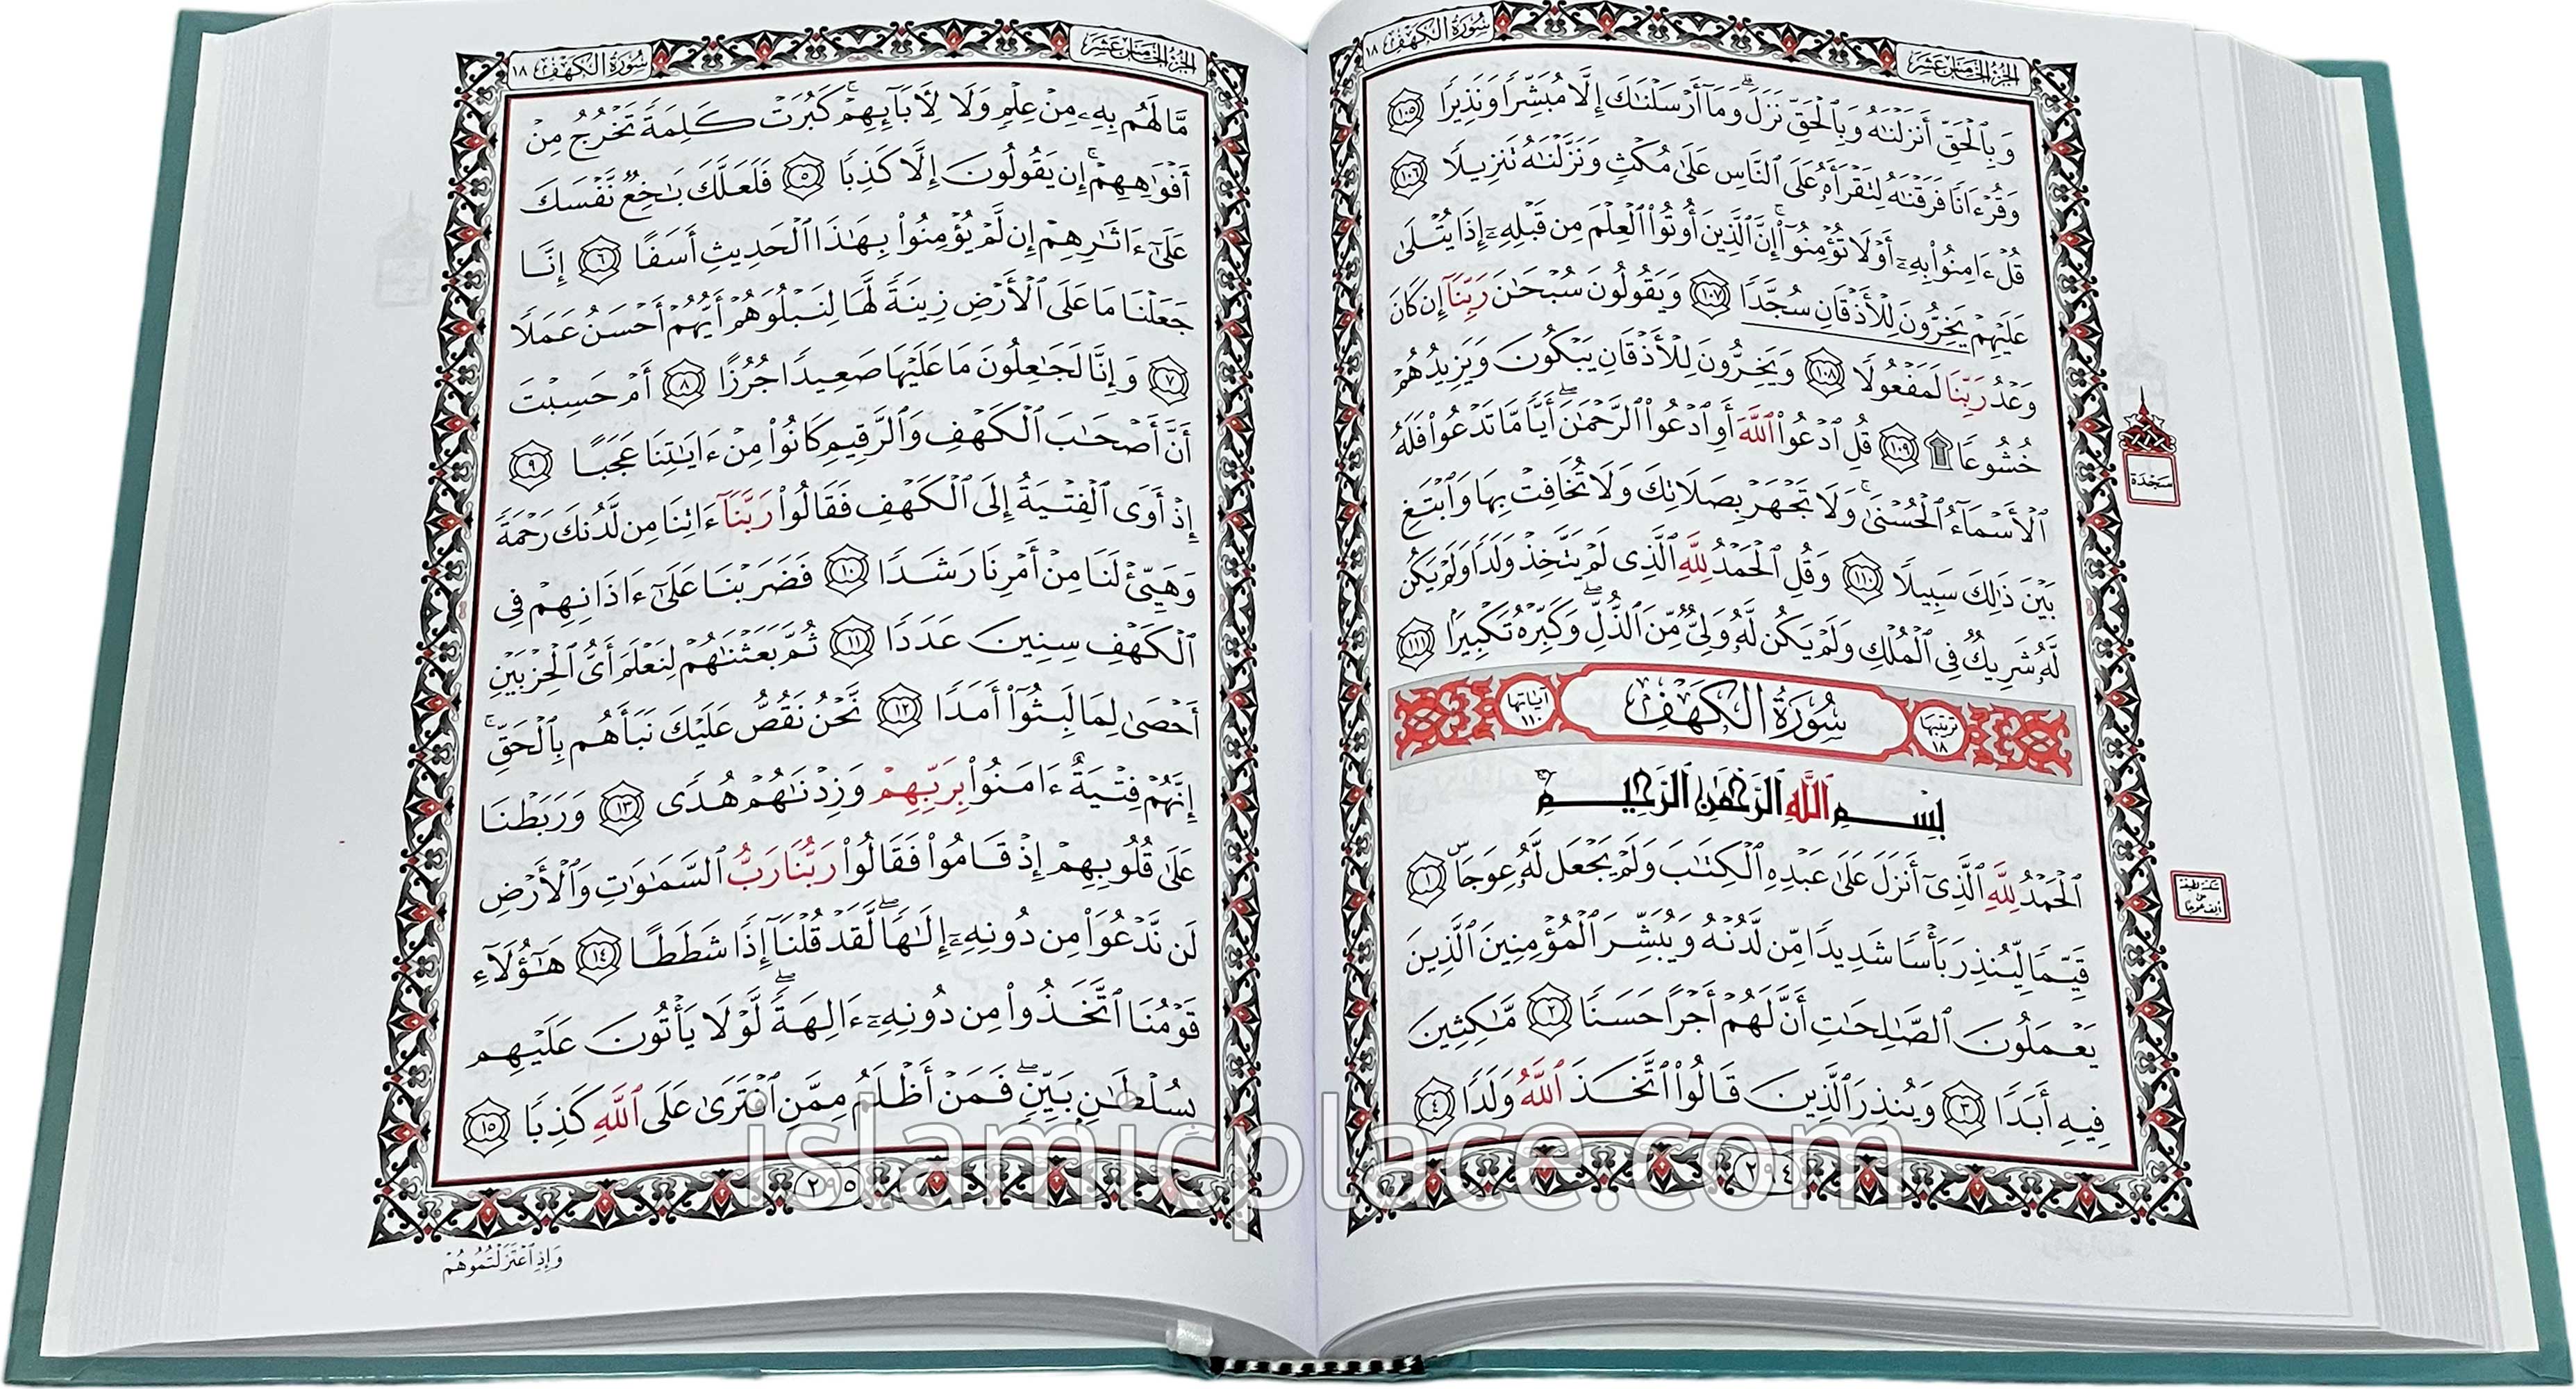 سُورَةُ الكَهۡف ١٨
الجُزْءُ الخَامِسَ عَشَرَ
وَبِٱلۡحَقِّ أَنزَلۡنَٰهُ وَبِٱلۡحَقِّ نَزَلَۗ وَمَآ أَرۡسَلۡنَٰكَ إِلَّا مُبَشِّرٗا وَنَذِيرٗا ١٠٥
وَقُرۡءَانٗا فَرَقۡنَٰهُ لِتَقۡرَأَهُۥ عَلَى ٱلنَّاسِ عَلَىٰ مُكۡثٖ وَنَزَّلۡنَٰهُ تَنزِيلٗا ١٠٦
قُلۡ ءَامِنُواْ بِهِۦٓ أَوۡ لَا تُؤۡمِنُوٓاْۚ إِنَّ ٱلَّذِينَ أُوتُواْ ٱلۡعِلۡمَ مِن قَبۡلِهِۦٓ إِذَا يُتۡلَىٰ
عَلَيۡهِمۡ يَخِرُّونَ لِلۡأَذۡقَانِ سُجَّدٗا ١٠٧ وَيَقُولُونَ سُبۡحَٰنَ رَبِّنَآ إِن كَانَ
وَعۡدُ رَبِّنَا لَمَفۡعُولٗا ١٠٨ وَيَخِرُّونَ لِلۡأَذۡقَانِ يَبۡكُونَ وَيَزِيدُهُمۡ
خُشُوعٗا۩ ١٠٩ قُلِ ٱدۡعُواْ ٱللَّهَ أَوِ ٱدۡعُواْ ٱلرَّحۡمَٰنَۖ أَيّٗا مَّا تَدۡعُواْ فَلَهُ
ٱلۡأَسۡمَآءُ ٱلۡحُسۡنَىٰۚ وَلَا تَجۡهَرۡ بِصَلَاتِكَ وَلَا تُخَافِتۡ بِهَا وَٱبۡتَغِ
بَيۡنَ ذَٰلِكَ سَبِيلٗا ١١٠ وَقُلِ ٱلۡحَمۡدُ لِلَّهِ ٱلَّذِي لَمۡ يَتَّخِذۡ وَلَدٗا وَلَمۡ يَكُن
لَّهُۥ شَرِيكٞ فِي ٱلۡمُلۡكِ وَلَمۡ يَكُن لَّهُۥ وَلِيّٞ مِّنَ ٱلذُّلِّۖ وَكَبِّرۡهُ تَكۡبِيرَۢا ١١١
ترتيبها ١٨ سُورَةُ الكَهۡف آياتها ١١٠
بِسۡمِ ٱللَّهِ ٱلرَّحۡمَٰنِ ٱلرَّحِيمِ
ٱلۡحَمۡدُ لِلَّهِ ٱلَّذِيٓ أَنزَلَ عَلَىٰ عَبۡدِهِ ٱلۡكِتَٰبَ وَلَمۡ يَجۡعَل لَّهُۥ عِوَجَاۜ ١
قَيِّمٗا لِّيُنذِرَ بَأۡسٗا شَدِيدٗا مِّن لَّدُنۡهُ وَيُبَشِّرَ ٱلۡمُؤۡمِنِينَ ٱلَّذِينَ
يَعۡمَلُونَ ٱلصَّٰلِحَٰتِ أَنَّ لَهُمۡ أَجۡرًا حَسَنٗا ٢ مَّٰكِثِينَ
فِيهِ أَبَدٗا ٣ وَيُنذِرَ ٱلَّذِينَ قَالُواْ ٱتَّخَذَ ٱللَّهُ وَلَدٗا ٤
٢٩٤
سَجْدَة
سكتة لطيفة
على
ألف عوجا
الجُزْءُ الخَامِسَ عَشَرَ
سُورَةُ الكَهۡف ١٨
مَّا لَهُم بِهِۦ مِنۡ عِلۡمٖ وَلَا لِأٓبَآئِهِمۡۚ كَبُرَتۡ كَلِمَةٗ تَخۡرُجُ مِنۡ
أَفۡوَٰهِهِمۡۚ إِن يَقُولُونَ إِلَّا كَذِبٗا ٥ فَلَعَلَّكَ بَٰخِعٞ نَّفۡسَكَ
عَلَىٰٓ ءَاثَٰرِهِمۡ إِن لَّمۡ يُؤۡمِنُواْ بِهَٰذَا ٱلۡحَدِيثِ أَسَفًا ٦ إِنَّا
جَعَلۡنَا مَا عَلَى ٱلۡأَرۡضِ زِينَةٗ لَّهَا لِنَبۡلُوَهُمۡ أَيُّهُمۡ أَحۡسَنُ عَمَلٗا
٧ وَإِنَّا لَجَٰعِلُونَ مَا عَلَيۡهَا صَعِيدٗا جُرُزًا ٨ أَمۡ حَسِبۡتَ
أَنَّ أَصۡحَٰبَ ٱلۡكَهۡفِ وَٱلرَّقِيمِ كَانُواْ مِنۡ ءَايَٰتِنَا عَجَبًا ٩
إِذۡ أَوَى ٱلۡفِتۡيَةُ إِلَى ٱلۡكَهۡفِ فَقَالُواْ رَبَّنَآ ءَاتِنَا مِن لَّدُنكَ رَحۡمَةٗ
وَهَيِّئۡ لَنَا مِنۡ أَمۡرِنَا رَشَدٗا ١٠ فَضَرَبۡنَا عَلَىٰٓ ءَاذَانِهِمۡ فِي
ٱلۡكَهۡفِ سِنِينَ عَدَدٗا ١١ ثُمَّ بَعَثۡنَٰهُمۡ لِنَعۡلَمَ أَيُّ ٱلۡحِزۡبَيۡنِ
أَحۡصَىٰ لِمَا لَبِثُوٓاْ أَمَدٗا ١٢ نَّحۡنُ نَقُصُّ عَلَيۡكَ نَبَأَهُم بِٱلۡحَقِّۚ
إِنَّهُمۡ فِتۡيَةٌ ءَامَنُواْ بِرَبِّهِمۡ وَزِدۡنَٰهُمۡ هُدٗى ١٣ وَرَبَطۡنَا
عَلَىٰ قُلُوبِهِمۡ إِذۡ قَامُواْ فَقَالُواْ رَبُّنَا رَبُّ ٱلسَّمَٰوَٰتِ وَٱلۡأَرۡضِ
لَن نَّدۡعُوَاْ مِن دُونِهِۦٓ إِلَٰهٗاۖ لَّقَدۡ قُلۡنَآ إِذٗا شَطَطًا ١٤ هَٰٓؤُلَآءِ
قَوۡمُنَا ٱتَّخَذُواْ مِن دُونِهِۦٓ ءَالِهَةٗۖ لَّوۡلَا يَأۡتُونَ عَلَيۡهِم
بِسُلۡطَٰنِۭ بَيِّنٖۖ فَمَنۡ أَظۡلَمُ مِمَّنِ ٱفۡتَرَىٰ عَلَى ٱللَّهِ كَذِبٗا ١٥
٢٩٥
وَإِذِ ٱعۡتَزَلۡتُمُوهُمۡ
islamicplace.com